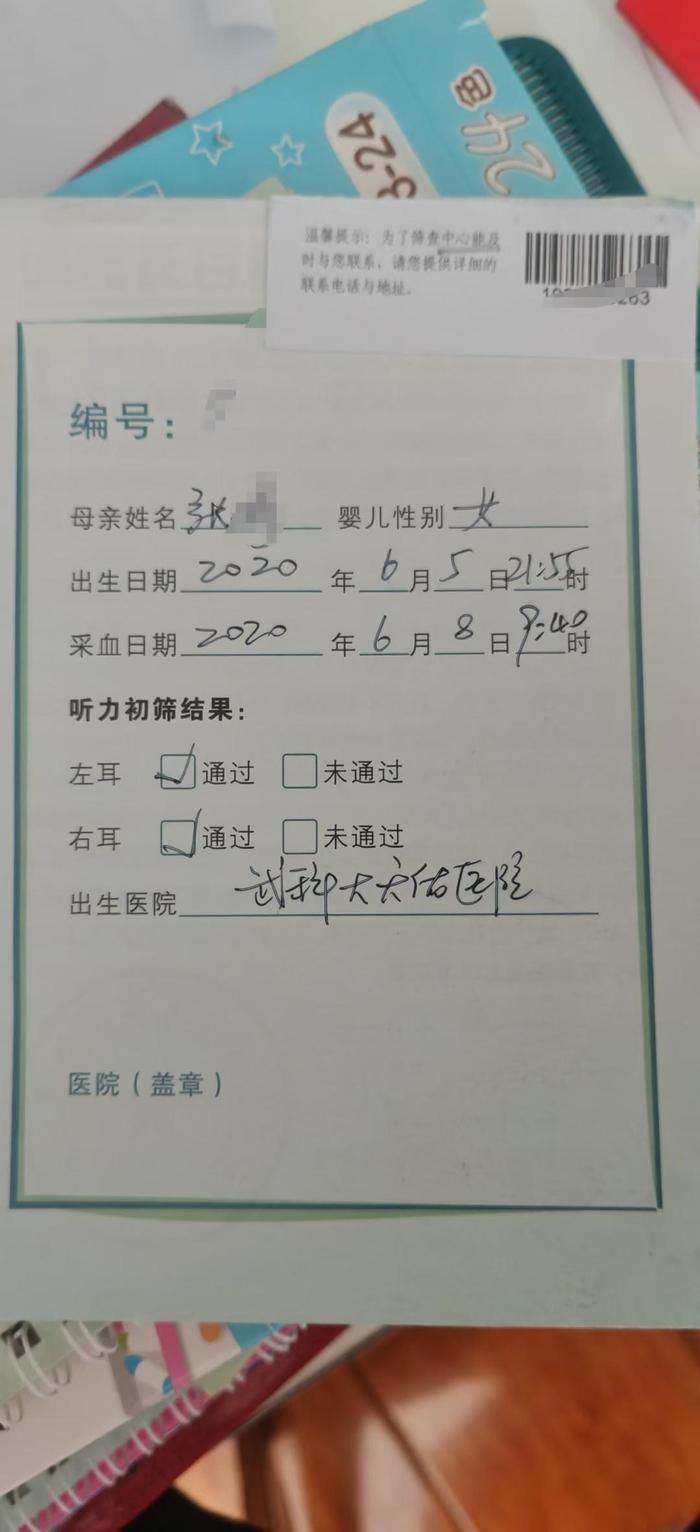 24
3-24
温馨提示：为了筛查中心能及
时与您联系，请您提供详细的
联系电话与地址。
编号：
母亲姓名 张 婴儿性别 女
出生日期 2020 年 6 月 5 日 21:55 时
采血日期 2020 年 6 月 8 日 9:40 时
听力初筛结果：
左耳 ☑ 通过 □ 未通过
右耳 ☑ 通过 □ 未通过
出生医院 武科大天佑医院
医院（盖章）